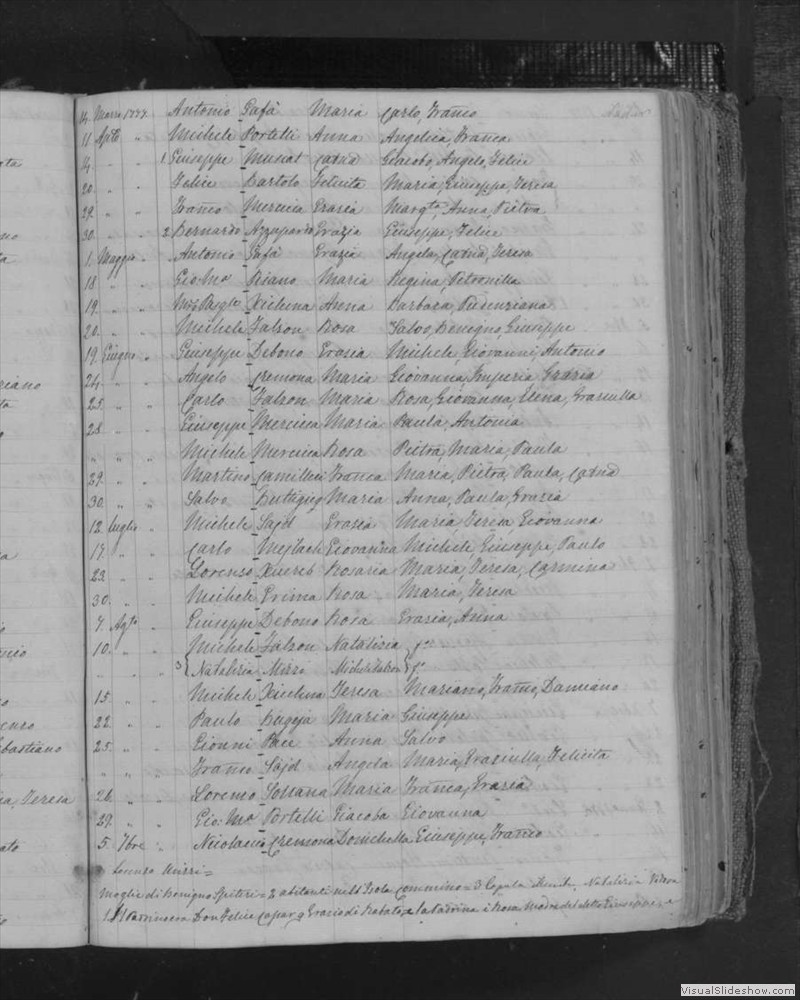 14. Marzo 1777 Antonio Gafà Maria Carlo, Franco
11 Aple " Michele Portelli Anna Angelica, Franca
14 " " 1 Giuseppe Muscat Catnd Giacobo, Angelo, Felice
20. " " Felice Bartolo Felicita Maria, Giuseppe, Teresa
29. " " Franco Mercieca Grazia Margta Anna, Pietra
30. " " 2 Bernardo Azzopardo Grazia Giuseppe, Felice
1. Maggio " Antonio Gafà Grazia Angela, Catnd, Teresa
18 " " Gio Ma Maria Regina, Petronilla
19. " " Xicluna Anna Barbara, Pudenziana
20. " " Michele Falzon Rosa Salvo, Benegno, Giuseppe
19. Giugno " Giuseppe Debono Grazia Michele, Giovanni, Antonio
24. " " Angelo Cremona Maria Giovanna, Imperia, Grazia
25. " " Carlo Falzon Maria Rosa, Giovanna, Elena, Graziulla
28. " " Giuseppe Mercieca Maria Paula, Antonia
" " " Michele Mercieca Rosa Pietra, Maria, Paula
29. " " Martino Camilleri Franca Maria, Pietra, Paula, Catnd
30. " " Salvo Buttigieg Maria Anna, Paula, Grazia
12. Luglio " Michele Sajd Grazia Maria Teresa, Giovanna
17. " " Carlo Mejlach Giovanna Michele, Giuseppe, Paulo
22. " " Lorenzo Xuereb Rosaria Maria, Teresa, Carmina
30. " " Michele Grima Rosa Maria, Teresa
7. Agto " Giuseppe Debono Rosa Grazia, Anna
10. " " Michele Falzon Natalizia
" " " 3 Natalizia Mizzi
15. " " Michele Xiclina Teresa Mariano, Franco, Damiano
22. " " Paulo Bugeja Maria Giuseppe
25. " " Gionni Pace Anna Salvo
" " " Franco Sajd Angela Maria, Graziulla, Felicita
26. " " Lorenzo Sultana Maria Franca, Grazia
29. " " Gio: Ma Portelli Giacoba Giovanna
5. 7bre " Nicolacio Cremona Domchella Giuseppe, Franco
Lorenzo Mizzi =
moglie di Benigno Spiteri = 2 abitanti nell'Isola Commino = 3 Natalizia
Don Felice Grazio di Rabato, la Padrina è Rosa Madre del detto Giuseppe
VisualSlideshow.com